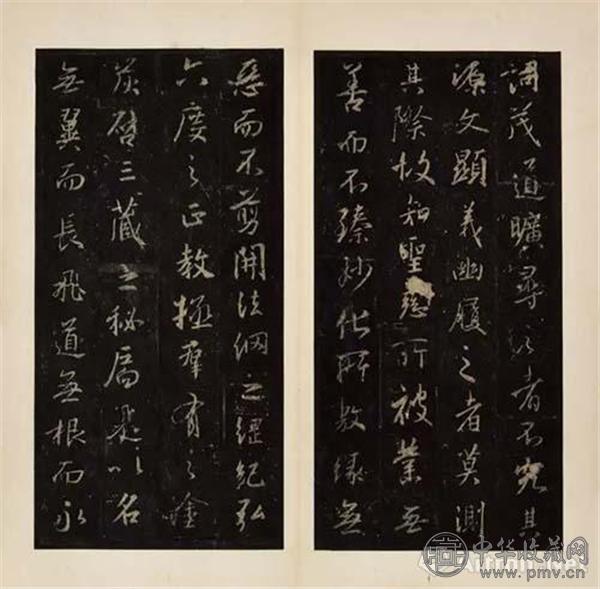 詞茂道曠尋之者不究其
源文顯義幽履之者莫測
其際故知聖慈所被業無
善而不臻妙化所敷緣無
惡而不剪開法網之綱紀弘
六度之正教拯羣有之塗
炭啓三藏之秘扃是以名
無翼而長飛道無根而永
中华收藏网
www.pmv.cn